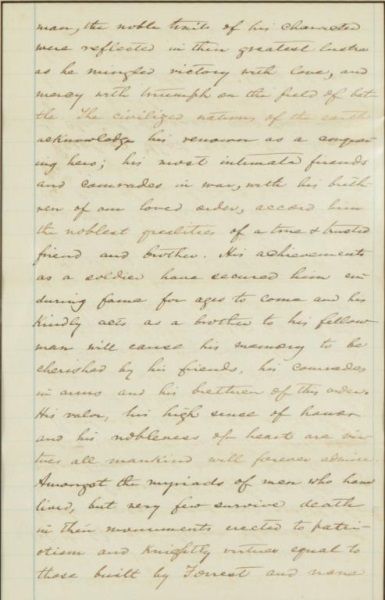 man, the noble traits of his character
were reflected in their greatest lustre
as he mingled victory with love, and
mercy with triumph on the field of bat
tle. The civilized nations of the earth
acknowledge his renown as a conquer
ing hero; his most intimate friends
and comrades in war, with his breth
ren of our loved order, accord him
the noblest qualities of a true & trusted
friend and brother. His achievements
as a soldier have secured him en
during fame for ages to come and his
kindly acts as a brother to his fellow
man will cause his memory to be
cherished by his friends, his comrades
in arms and his brethren of this order.
His valor, his high sense of honor
and his nobleness of heart are vir
tues all mankind will forever admire
Amongst the myriads of men who have
lived, but very few survive death
in their monuments erected to patri-
otism and knightly virtues equal to
those built by Forrest and none